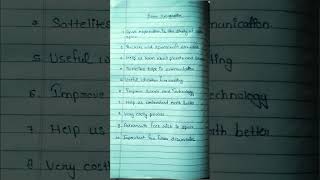 Space Exploration
1. Space exploration is the study of outer space
2. Rockets and spacecraft are used
3. Help us learn about planets and
4. Satellites help in communication
5. Useful weather forecasting
6. Improve Science and technology
7. Help us understand Earth better
8. Very costly process
9. Astronauts face risk in space
10. Important for future discoveries
4. Satellites
munication
5. Useful
ting
6. Improve
echnology
7. Help us
th better
8. Very costl